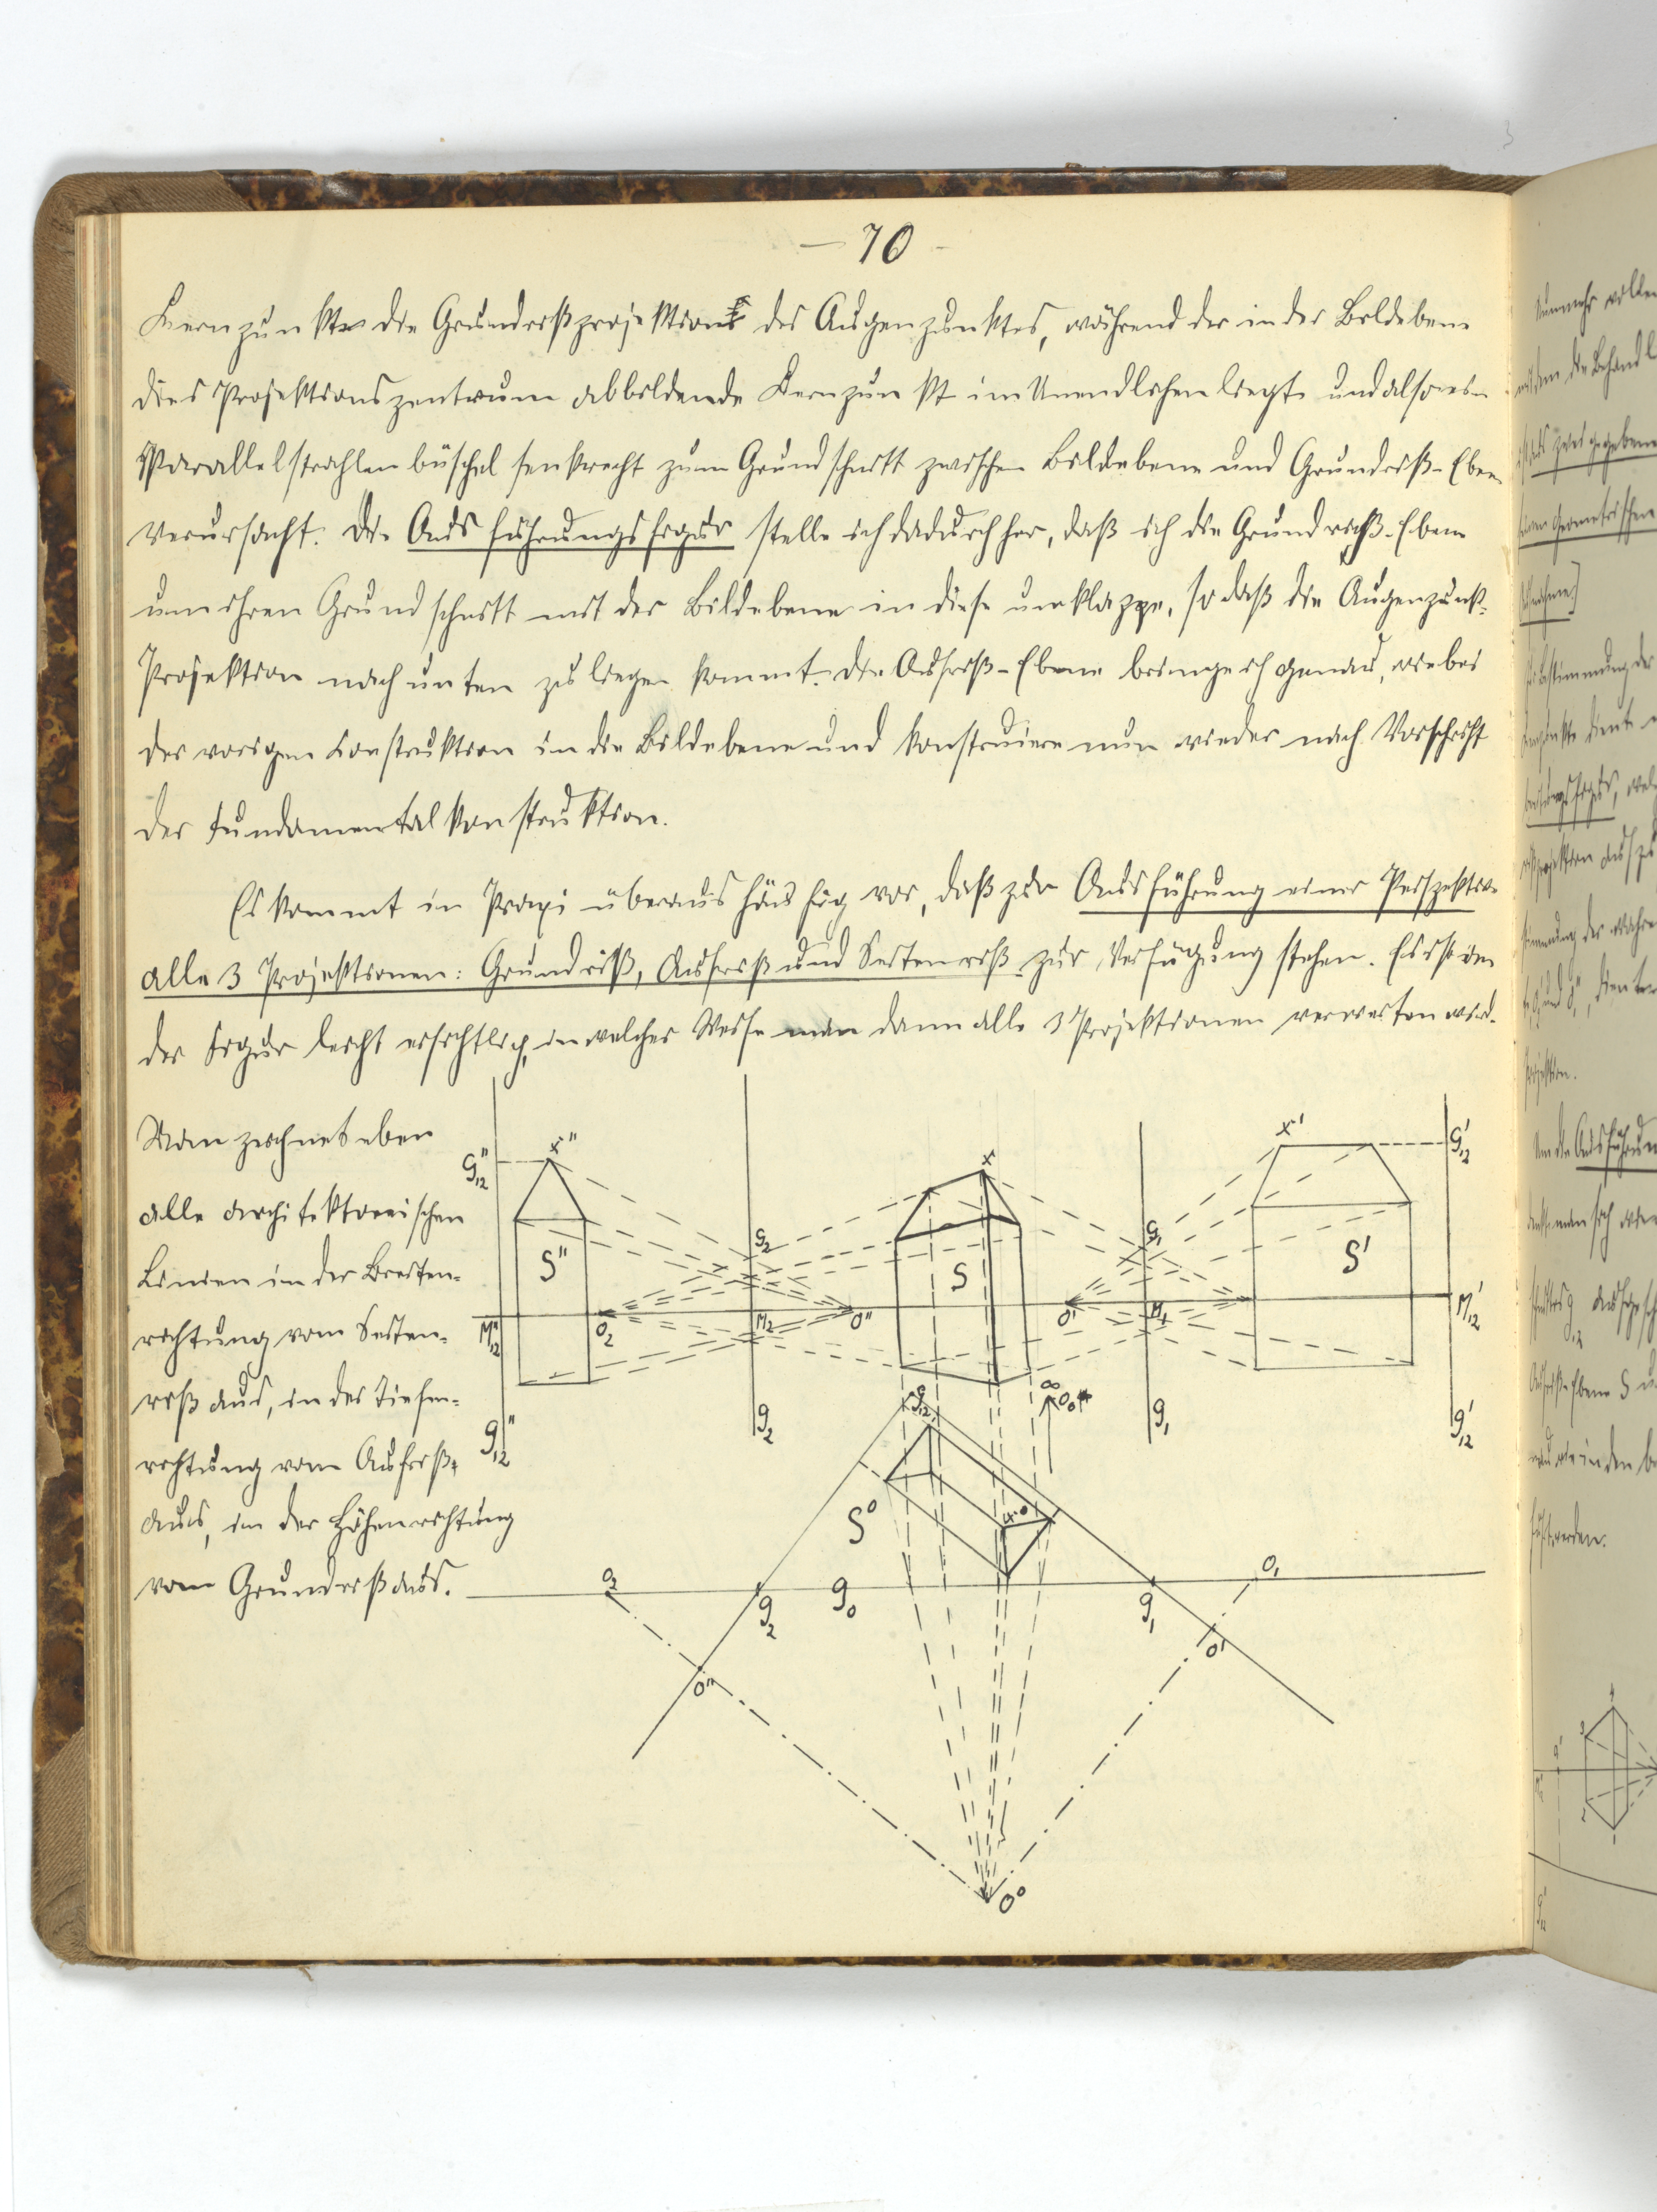 — 70 -
Kernpunkte die Grundrißprojektion des Augenpunktes, während der in der Bildebene
dies Projektionszentrum abbildende Kernpunkt im Unendlichen liegt und also ein
Parallelstrahlenbüschel senkrecht zum Grundschnitt zwischen Bildebene und Grundriß-Ebene
verursacht. Die Ausführungsfigur stelle ich dadurch her, daß ich die Grundriß-Ebene
um ihren Grundschnitt mit der Bildebene in diese umklappe, so daß die Augenpunkt-
Projektion nach unten zu liegen kommt. Die Aufriß-Ebene bringe ich genau, wie bei
der vorigen Konstruktion in die Bildebene und konstruiere nun wieder nach Vorschrift
der Fundamentalkonstruktion.
Es kommt in Praxi überaus häufig vor, daß zur Ausführung einer Perspektive
alle 3 Projektionen: Grundriß, Aufriß und Seitenriß zur Verfügung stehen. Es ist in
der Figur leicht ersichtlich, in welcher Weise man dann alle 3 Projektionen verwerten wird.
Man zeichnet eben
alle architektonischen
Linien in der Breiten-
richtung vom Seiten-
riß aus, in der Tiefen-
richtung vom Aufriß
aus, in der Höhenrichtung
vom Grundriß aus.
x" x x'
G"₁₂ G₂ G₁ G'₁₂
S" S S'
M"₁₂ O₂ M₂ O" O' M₁ M'₁₂
g"₁₂ g₂ g₁₂ ∞ g₁ g'₁₂
S⁰ x⁰
O₂ g₂ g₀ g₁ O₁
O" O'
O⁰